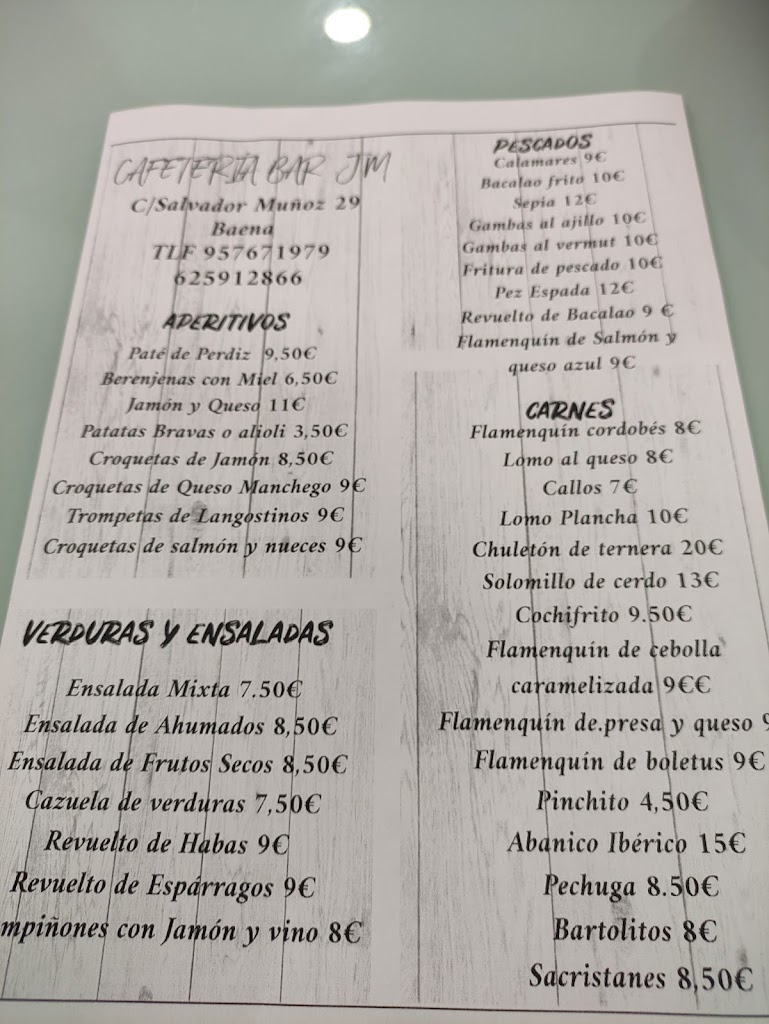 CAFETERIA BAR JM
C/Salvador Muñoz 29
Baena
TLF 957671979
625912866
APERITIVOS
Paté de Perdiz 9,50€
Berenjenas con Miel 6,50€
Jamón y Queso 11€
Patatas Bravas o alioli 3,50€
Croquetas de Jamón 8,50€
Croquetas de Queso Manchego 9€
Trompetas de Langostinos 9€
Croquetas de salmón y nueces 9€
VERDURAS Y ENSALADAS
Ensalada Mixta 7.50€
Ensalada de Ahumados 8,50€
Ensalada de Frutos Secos 8,50€
Cazuela de verduras 7,50€
Revuelto de Habas 9€
Revuelto de Espárragos 9€
mpiñones con Jamón y vino 8€
PESCADOS
Calamares 9€
Bacalao frito 10€
Sepia 12€
Gambas al ajillo 10€
Gambas al vermut 10€
Fritura de pescado 10€
Pez Espada 12€
Revuelto de Bacalao 9 €
Flamenquín de Salmón y
queso azul 9€
CARNES
Flamenquín cordobés 8€
Lomo al queso 8€
Callos 7€
Lomo Plancha 10€
Chuletón de ternera 20€
Solomillo de cerdo 13€
Cochifrito 9.50€
Flamenquín de cebolla
caramelizada 9€€
Flamenquín de.presa y queso 9
Flamenquín de boletus 9€
Pinchito 4,50€
Abanico Ibérico 15€
Pechuga 8.50€
Bartolitos 8€
Sacristanes 8,50€